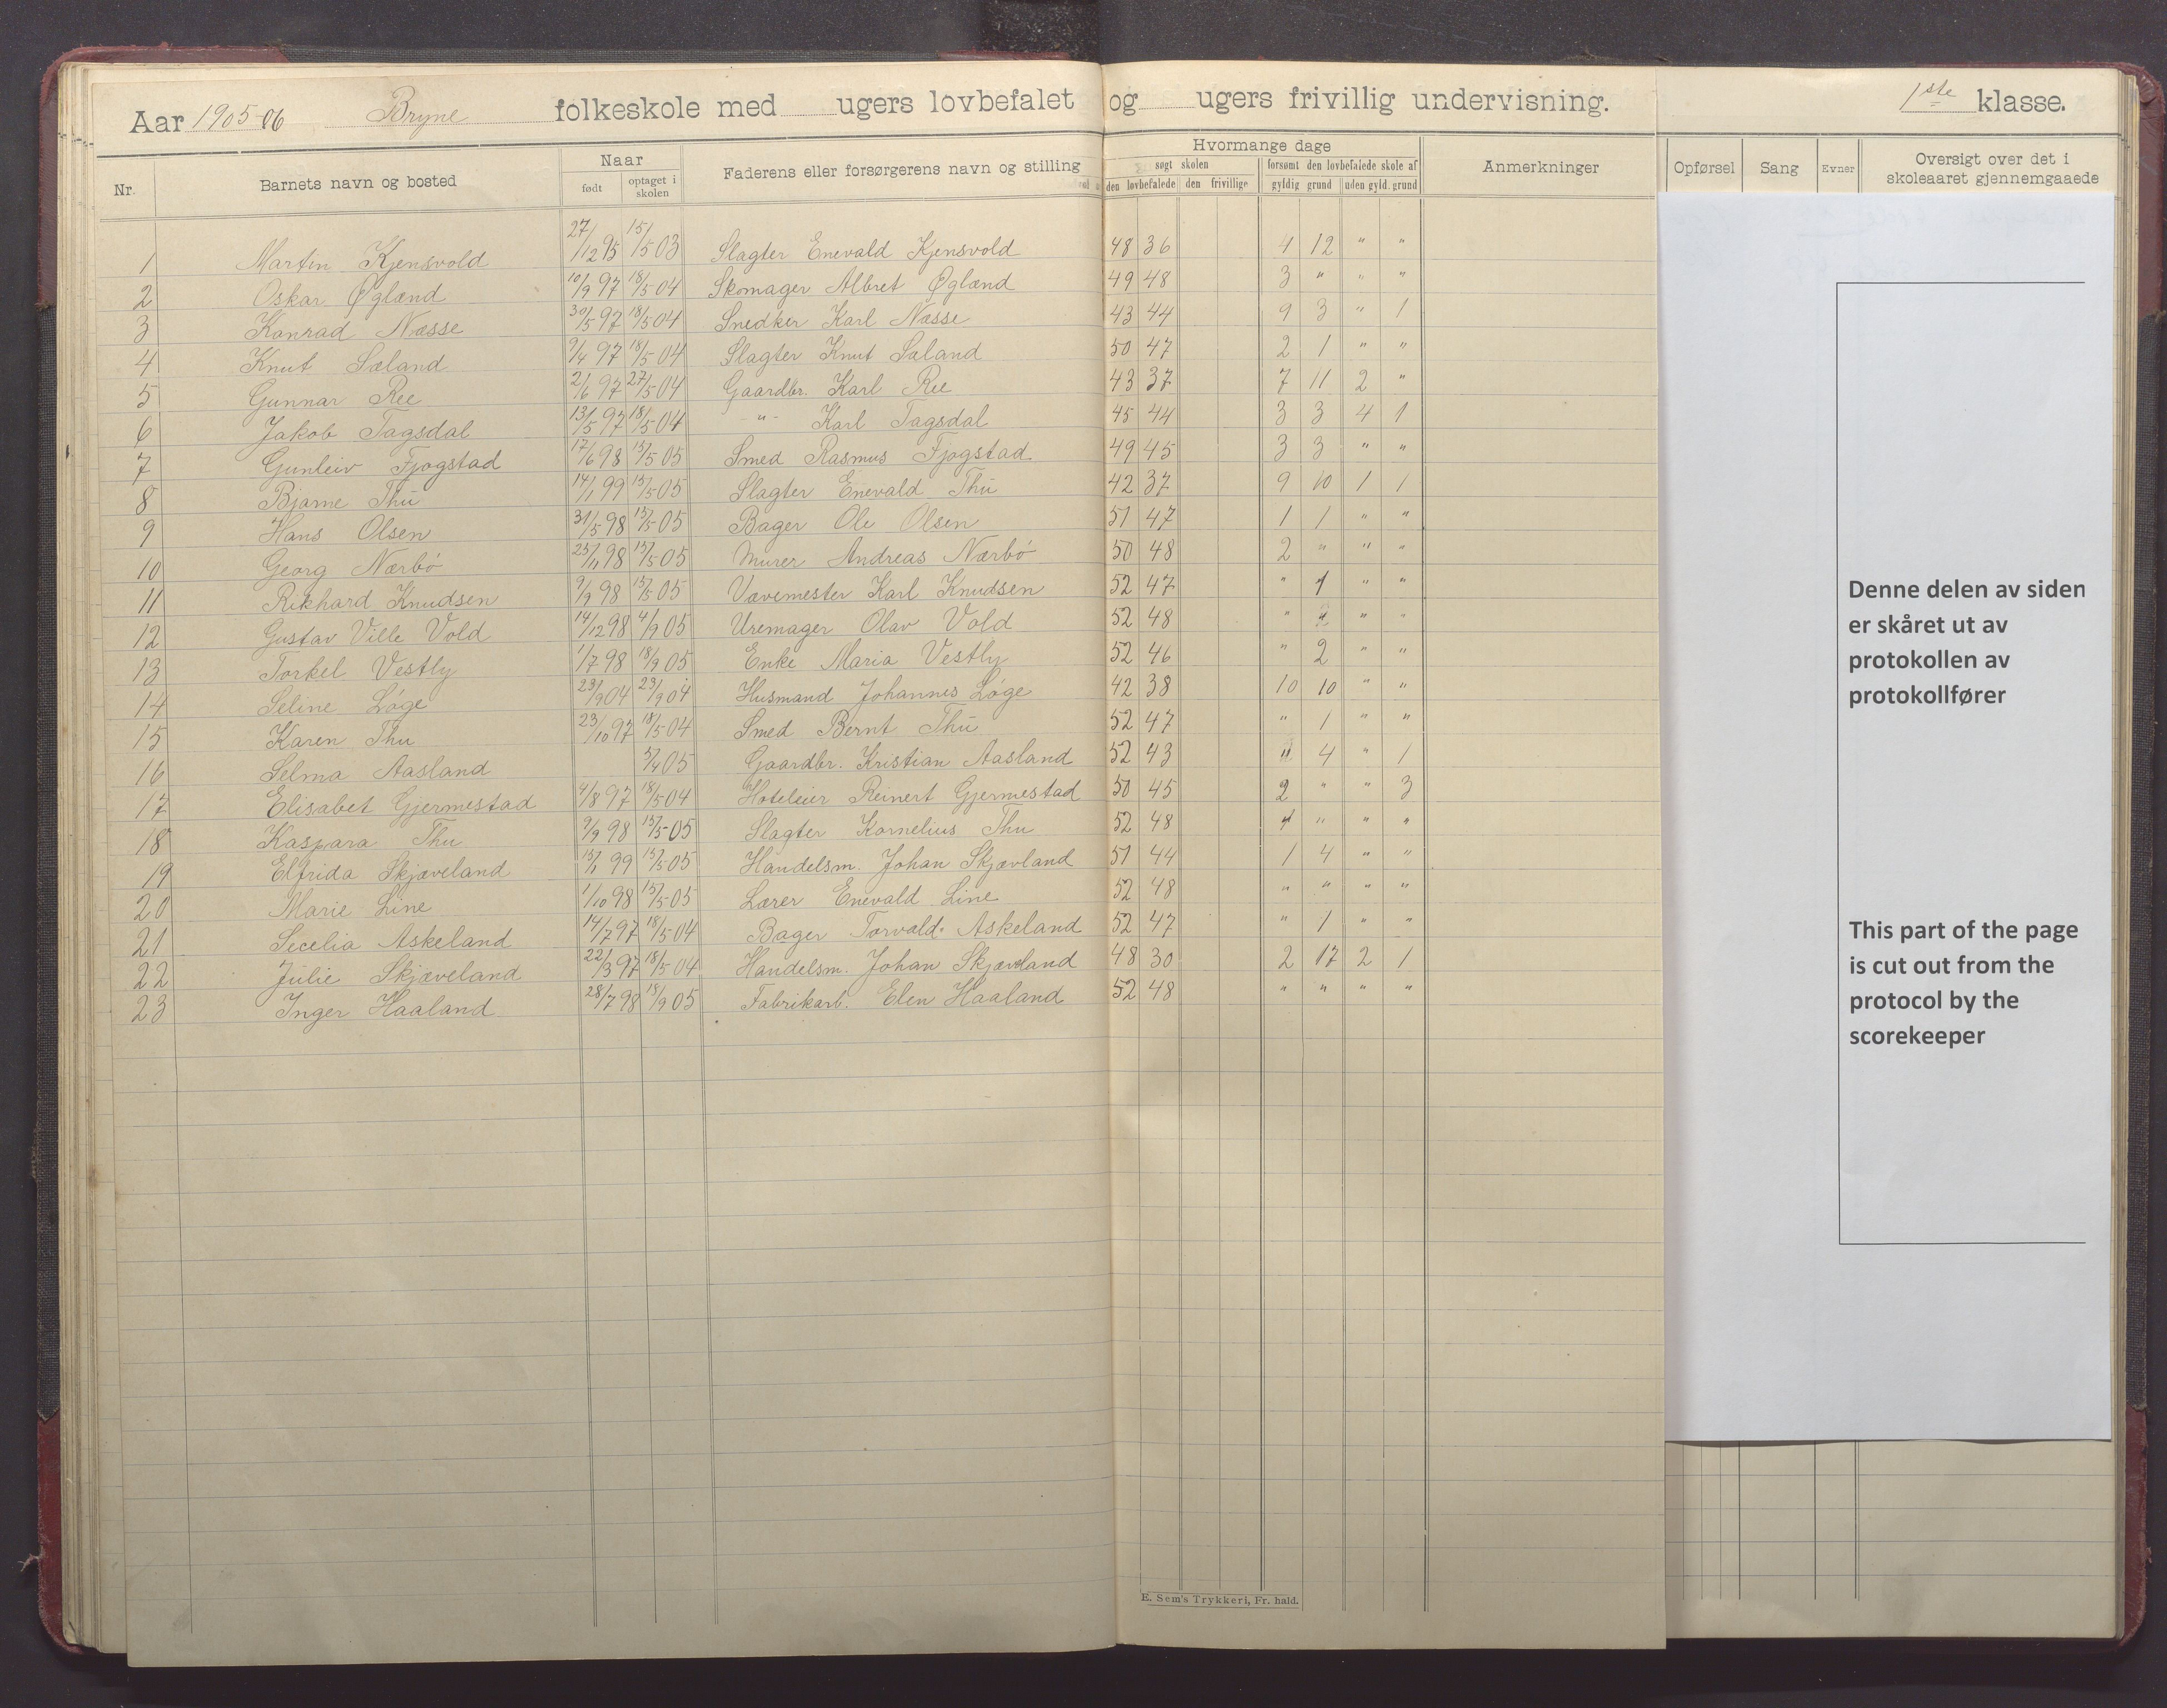 Aar 1905-06 Bryne folkeskole med ugers lovbefalet og ugers frivillig undervisning. 1ste klasse.
Nr. Barnets navn og bosted Naar født optaget i skolen Faderens eller forsørgerens navn og stilling Hvormange dage søgt skolen den lovbefalede den frivillige forsømt den lovbefalede skole af gyldig grund uden gyld. grund Anmerkninger Opførsel Sang Evner Oversigt over det i skoleaaret gjennemgaaede
1 Martin Kjensvold 27/12 95 15/5 03 Slagter Enevald Kjensvold 48 36 4 12 " "
2 Oskar Øglænd 10/9 97 18/5 04 Skomager Albret Øglænd 49 48 3 " " "
3 Konrad Næsse 30/5 97 18/5 04 Snedker Karl Næsse 43 44 9 3 " 1
4 Knut Sæland 9/4 97 18/5 04 Slagter Knut Sæland 50 47 2 1 " "
5 Gunnar Ree 2/6 97 27/5 04 Gaardbr. Karl Ree 43 37 7 11 2 "
6 Jakob Tagsdal 13/5 97 18/5 04 -"- Karl Tagsdal 45 44 3 3 4 1
7 Gunleiv Fjogstad 17/6 98 15/5 05 Smed Rasmus Fjogstad 49 45 3 3 " "
8 Bjarne Thu 14/1 99 15/5 05 Slagter Enevald Thu 42 37 9 10 1 1
9 Hans Olsen 31/5 98 15/5 05 Bager Ole Olsen 51 47 1 1 " "
10 Georg Nærbó 25/11 98 15/5 05 Murer Andreas Nærbó 50 48 2 " " "
11 Rikhard Knudsen 9/9 98 15/5 05 Vævemester Karl Knudsen 52 47 " 1 " "
12 Gustav Ville Vold 14/12 98 4/9 05 Uremager Olav Vold 52 48 " " " "
13 Torkel Vestly 1/7 98 18/9 05 Enke Maria Vestly 52 46 " 2 " "
14 Seline Lóge 23/9 04 23/9 04 Husmand Johannes Lóge 42 38 10 10 " "
15 Karen Thu 23/10 97 18/5 04 Smed Bernt Thu 52 47 " 1 " "
16 Selma Aasland 5/4 05 Gaardbr. Kristian Aasland 52 43 " 4 " 1
17 Elisabet Gjermestad 4/8 97 18/5 04 Hoteleier Reinert Gjermestad 50 45 2 " " 3
18 Kaspara Thu 9/9 98 15/5 05 Slagter Kornelius Thu 52 48 " " " "
19 Elfrida Skjæveland 15/1 99 15/5 05 Handelsm. Johan Skjævland 51 44 1 4 " "
20 Marie Line 1/10 98 15/5 05 Lærer Enevald Line 52 48 " " " "
21 Secelia Askeland 14/7 97 18/5 04 Bager Torvald Askeland 52 47 " 1 " "
22 Julie Skjæveland 22/3 97 18/5 04 Handelsm. Johan Skjæveland 48 30 2 17 2 1
23 Inger Haaland 28/7 98 18/9 05 Fabrikarb. Elen Haaland 52 48 " " " "
E. Sem's Trykkeri, Fr. hald.
Denne delen av siden
er skåret ut av
protokollen av
protokollfører
This part of the page
is cut out from the
protocol by the
scorekeeper